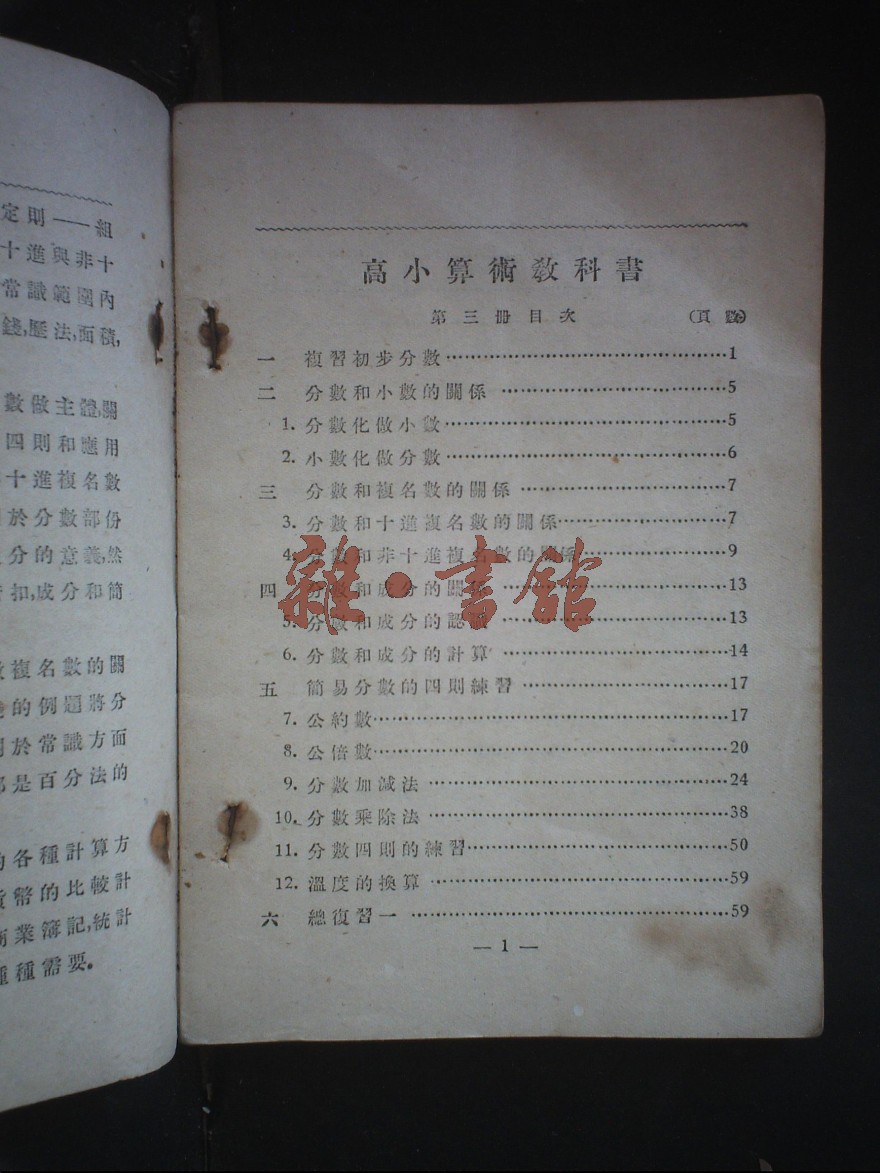 定則——組
十進與非十
常識範圍內
錢,歷法,面積,
數做主體,關
四則和應用
十進複名數
於分數部份
分的意義,然
扣,成分和簡
複名數的關
的例題將分
於常識方面
是百分法的
各種計算方
幣的比較計
商業簿記,統計
種需要。
高小算術教科書
第三册目次 (頁數)
一 複習初步分數……1
二 分數和小數的關係……5
1. 分數化做小數……5
2. 小數化做分數……6
三 分數和複名數的關係……7
3. 分數和十進複名數的關係……7
4. 分數和非十進複名數的關係……9
四 分數和成分的關係……13
5. 分數和成分的認識……13
6. 分數和成分的計算……14
五 簡易分數的四則練習……17
7. 公約數……17
8. 公倍數……20
9. 分數加減法……24
10. 分數乘除法……38
11. 分數四則的練習……50
12. 溫度的換算……59
六 總復習一……59
— 1 —
雜·書館